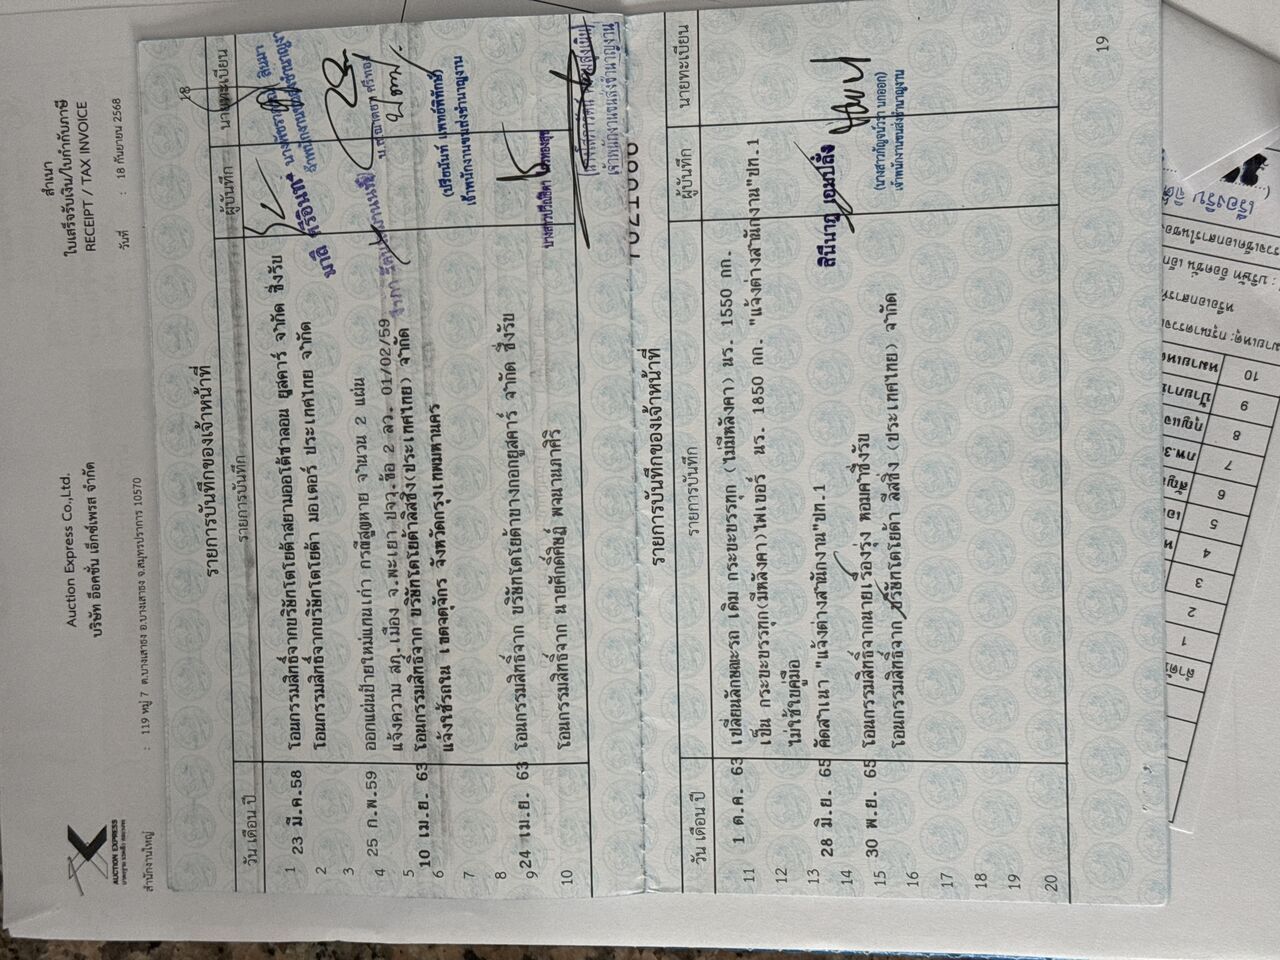 AUCTION EXPRESS
สำนักงานใหญ่
Auction Express Co.,Ltd.
บริษัท อ๊อคชั่น เอ็กซ์เพรส จำกัด
: 119 หมู่ 7 ต.บางเสาธง อ.บางเสาธง จ.สมุทรปราการ 10570
สำเนา
ใบเสร็จรับเงิน/ใบกำกับภาษี
RECEIPT / TAX INVOICE
วันที่ : 18 กันยายน 2568
18
รายการบันทึกของเจ้าหน้าที่
วัน เดือน ปี รายการบันทึก ผู้บันทึก นายทะเบียน
1 23 มี.ค.58 โอนกรรมสิทธิ์จากบริษัทโตโยต้าสยามออโต้ซาลอน ยูสคาร์ จำกัด ซึ่งรับ
2 โอนกรรมสิทธิ์จากบริษัทโตโยต้า มอเตอร์ ประเทศไทย จำกัด
3
4 25 ก.พ.59 ออกแผ่นป้ายใหม่แทนเก่า กรณีสูญหาย จำนวน 2 แผ่น
แจ้งความ สภ.เมือง จ.พะเยา ปจว.ข้อ 2 ลว. 01/02/59
5 10 เม.ย. 63 โอนกรรมสิทธิ์จาก บริษัทโตโยต้าลีสซิ่ง(ประเทศไทย) จำกัด
6 แจ้งใช้รถใน เขตจตุจักร จังหวัดกรุงเทพมหานคร
(ปรียนันท์ แพทย์พิทักษ์)
เจ้าพนักงานขนส่งชำนาญงาน
7
8
9 24 เม.ย. 63 โอนกรรมสิทธิ์จาก บริษัทโตโยต้าบางกอกยูสคาร์ จำกัด ซึ่งรับ
10 โอนกรรมสิทธิ์จาก นายศักดิ์ศิษฏ์ พจนานภาศิริ
เจ้าพนักงานขนส่งชำนาญงาน
รายการบันทึกของเจ้าหน้าที่
วัน เดือน ปี รายการบันทึก ผู้บันทึก นายทะเบียน
11 1 ต.ค. 63 เปลี่ยนลักษณะรถ เดิม กระบะบรรทุก (ไม่มีหลังคา) นร. 1550 กก.
12 เป็น กระบะบรรทุก(มีหลังคา)ไฟเบอร์ นร. 1850 กก. "แจ้งต่างสำนักงาน"ปท.1
13 ไม่ใช้ใบคู่มือ
14 28 มิ.ย. 65 คัดสำเนา "แจ้งต่างสำนักงาน"ปท.1
สินีนาฎ เอมปลั่ง
15 30 พ.ย. 65 โอนกรรมสิทธิ์จากนายเรืองรุ่ง หอมคำซึ่งรับ
16 โอนกรรมสิทธิ์จาก บริษัทโตโยต้า ลีสซิ่ง (ประเทศไทย) จำกัด
เจ้าพนักงานขนส่งชำนาญงาน
17
18
19
20
19
ลำดับ
1
2
3
4
5
6
7
8 กุญแจ
9
10 หมายเหตุ